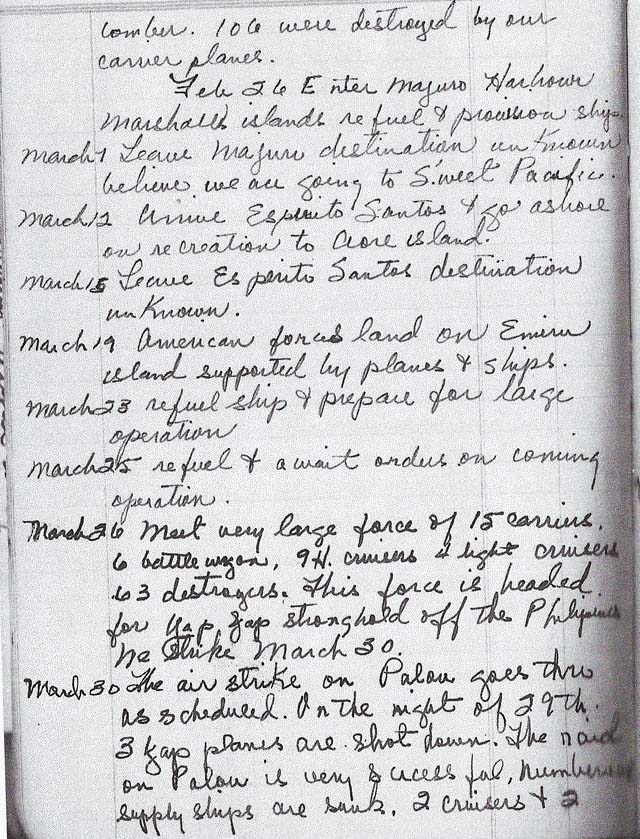 comber. 106 were destroyed by our
carrier planes.
Feb 26 Enter Majuro Harbour
Marshalls islands refuel & provision ship.
March 7 Leave Majuro destination unknown
believe we are going to S.west Pacific.
March 12 Arrive Espirito Santos & go ashore
on recreation to Aore island.
March 15 Leave Esperito Santos destination
unknown.
March 19 American forces land on Emiru
island supported by planes & ships.
March 23 refuel ship & prepare for large
operation
March 25 refuel & await orders on coming
operation.
March 26 Meet very large force of 15 carriers,
6 battlewagon, 9 H. cruisers 4 light cruisers
63 destroyers. This force is headed
for Yap Jap stronghold off the Philipines
We Strike March 30.
March 30 The air strike on Palou goes thru
as scheduled. On the night of 29th.
3 Jap planes are shot down. The raid
on Palou is very sucessful, Numberous
supply ships are sunk, 2 cruisers & 2